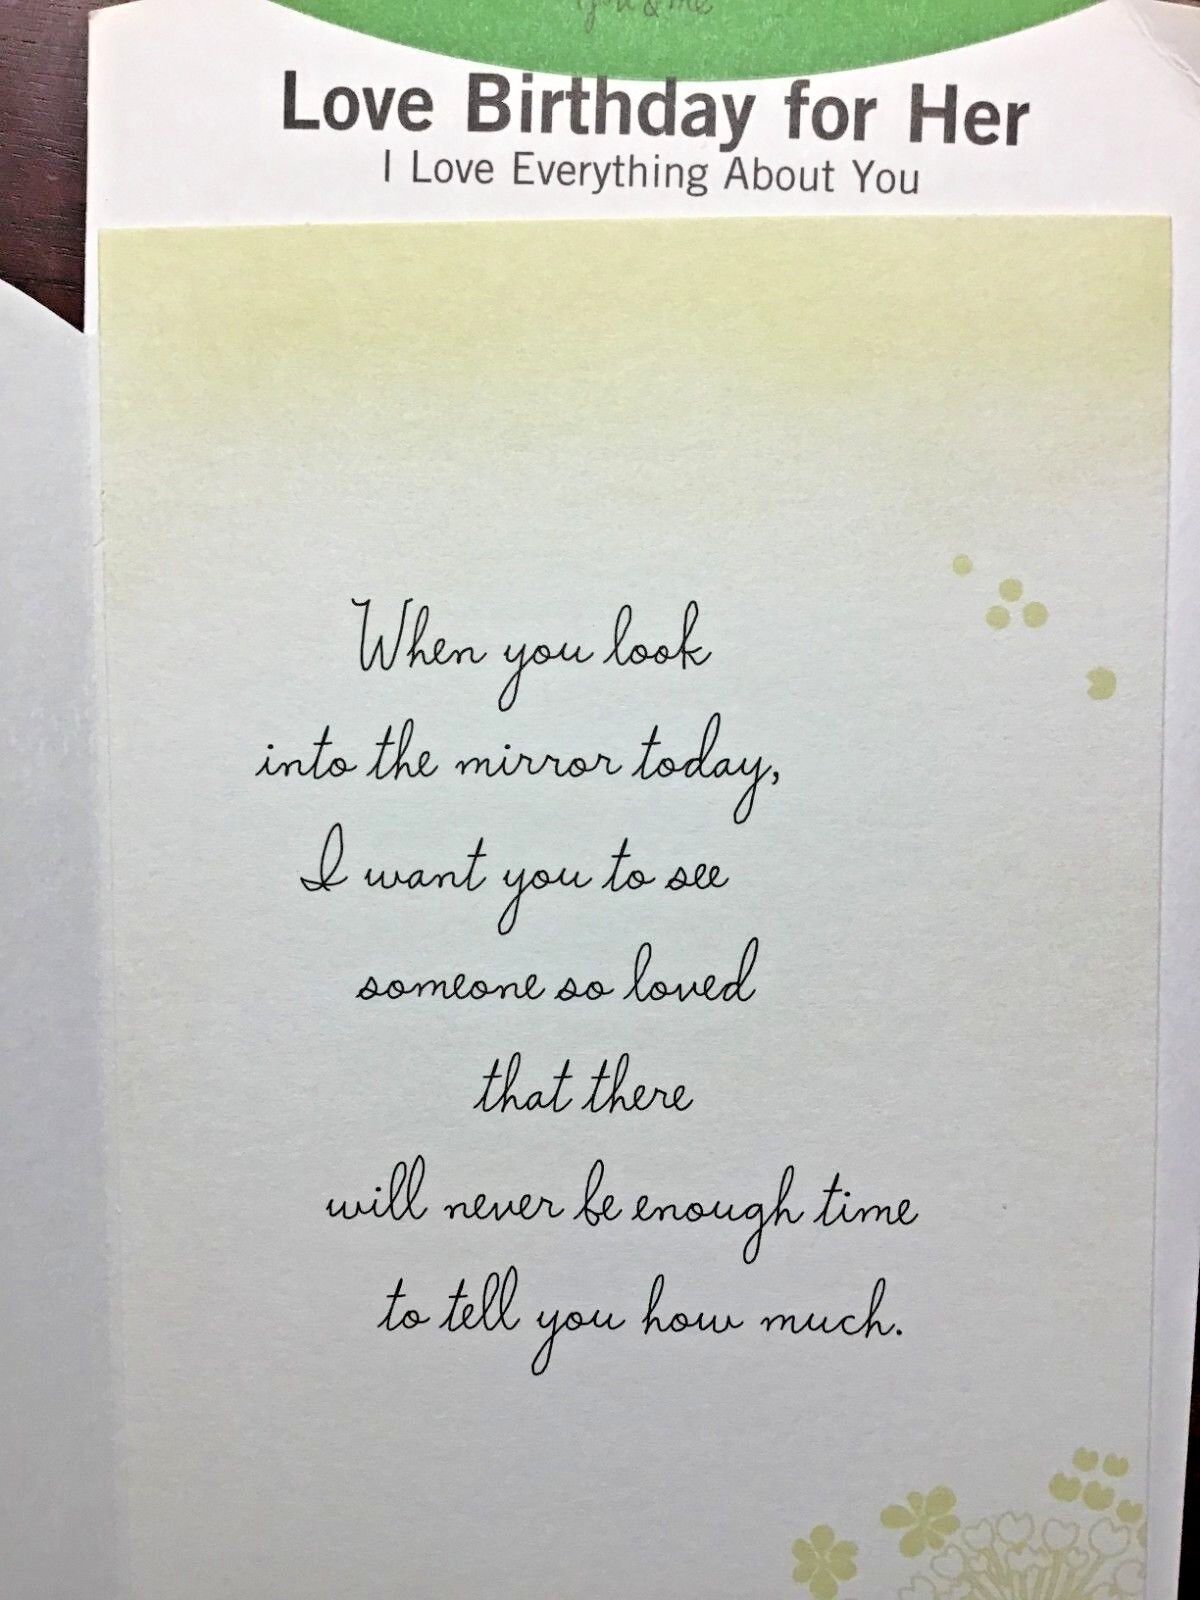 you & me
Love Birthday for Her
I Love Everything About You
When you look
into the mirror today,
I want you to see
someone so loved
that there
will never be enough time
to tell you how much.